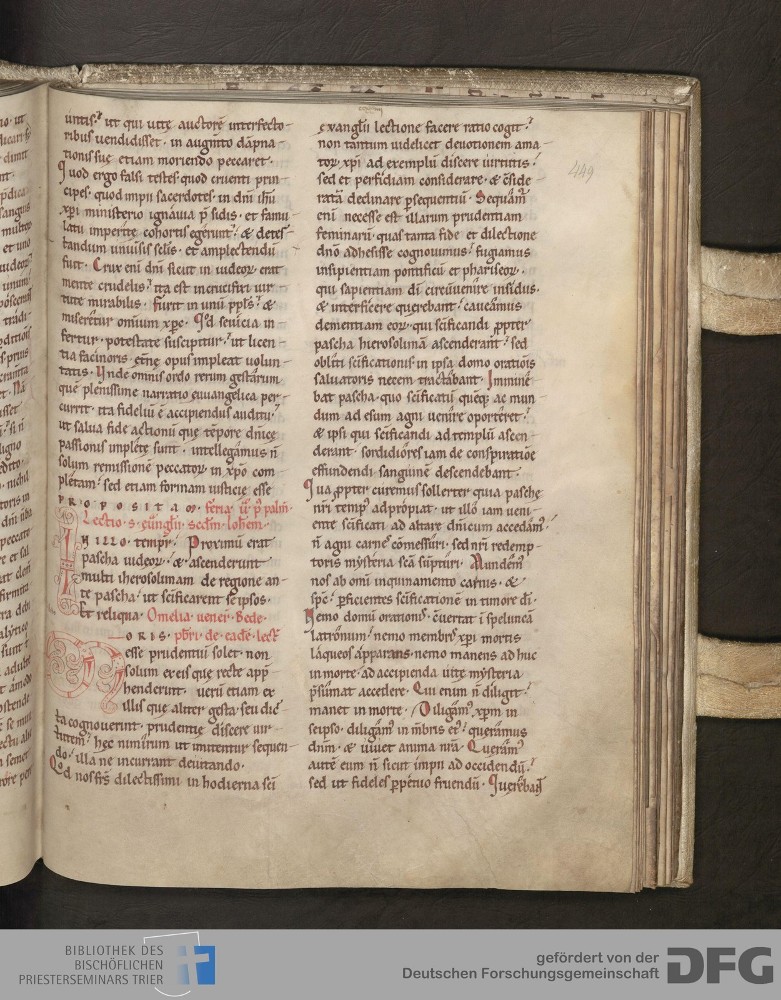 untis· ut qui uitę auctorē interfecto-
ribus uendidisset· in augm̄to dāpna-
tionis suę etiam moriendo peccaret·
Quod ergo falsi testes· quod cruenti prin-
cipes· quod impii sacerdotes· in dn̄i ihū
xp̄i ministerio ignauia p̄sidis· et famu-
latu imperitę cohortis egerunt· & detes-
tandum uniuīsis sc̄lis· et amplectendū
fuit· Crux eni dn̄i sicut in iudeoꝝ erat
mente crudelis· ita est incrucifixi uir-
tute mirabilis· Furit in unū ppl̄s· &
miseret̄ur omnium xp̄c· Qd̄ seuicia in-
fertur· potestate suscipitur· ut licen-
tia facinoris· ętn̄ę opus impleat uolun-
tatis· Unde omnis ordo rerum gestarum
quē plenissime narratio euuangelica per-
currit· ita fideliū ē accipiendus auditu·
ut salua fide actionū quę tēpore dn̄icę
passionis implētę sunt· intellegam̄us n̄
solum remissionē peccatoꝝ in xp̄o com-
plētam· sed etiam formam iusticię esse
PROPOSITAM· feria
Lectio· s· eūnglii· scdm̄· Ioh̄em·
IN ILLO· tempr̄· Proximū erat
pascha iudeoꝝ· & ascenderunt
multi iherosolimam de regione an-
te pascha· ut sc̄ificarent se ipsos·
Et reliqua· Omelia· uener· Bede·
ORIS· pbr̄i· de· eadē· lect̄
esse prudentiū solet· non
solum ex eis que recte app̄-
henderunt· uerū etiam ex
illis que aliter gesta· seu dic̄-
ta cognouerint· prudentię discere uir-
tutem· hęc nimirum ut imitentur sequen-
do· illa ne incurrant deuitando·
Qd̄ nos frs̄ dilectissimi in hodierna sc̄i
euangl̄ii lectione facere ratio cogit·
non tantum uidelicet deuotionem ama-
toꝝ xp̄i ad exemplū discere uirtutis·
sed et perfidiam considerare· & c̄side-
ratā declinare p̄sequentiū· Sequām̄
eni necesse est illarum prudentiam
feminarū· quas tanta fide et dilectione
dn̄o adhesisse cognouimus· fugiamus
insipientiam pontificū et phariseoꝝ·
qui sapientiam dī circūuenire insidus·
& interficere querebant· caueāmus
dementiam eoꝝ· qui sc̄ificandi ꝓpter
pascha hierosolimā ascenderant· sed
oblīti sc̄ificationis· in ipsa domo oratiōis
saluatoris necem tractabant· Imminē-
bat pascha· quo sc̄ificatū queq; ac mun-
dum ad esum agni uenīre oportēret·
& ipsi qui sc̄ificandi ad templū ascen-
derant· sordidiōres iam de conspiratiōe
effundendi sanguinē descendebant·
Qua ꝓpter curemus sollerter quia paschę
nr̄i temp̄ adpropiat· ut illō iam ueni-
ente sc̄ificati ad altare dn̄icum accedām̄·
n̄ agni carnē cōmessūri· sed nr̄i redemp-
toris mystēria sc̄ā sūpturi· Mundem̄
nos ab omi inquinamento carnis· &
spc̄· p̄ficientes sc̄ificationē in timore dī·
Nemo domū oration̄· c̄uertat ī speluncā
latronum· nemo membr̄ xp̄i mortis
laqueos apparans· nemo manens ad huc
in morte· ad accipienda uitę mysteria
p̄sūmat accedere· Qui enim n̄ diligit·
manet in morte· Diligām̄ xp̄m in
seipso· diligām̄ in mb̄ris ei· querāmus
dnm̄· & uiuet anima nr̄a· Querām̄
autē eum n̄ sicut impii ad occidendū·
sed ut fideles p̄petuo fruendū· Querēban̄
449
BIBLIOTHEK DES
BISCHÖFLICHEN
PRIESTERSEMINARS TRIER
gefördert von der
Deutschen Forschungsgemeinschaft
DFG